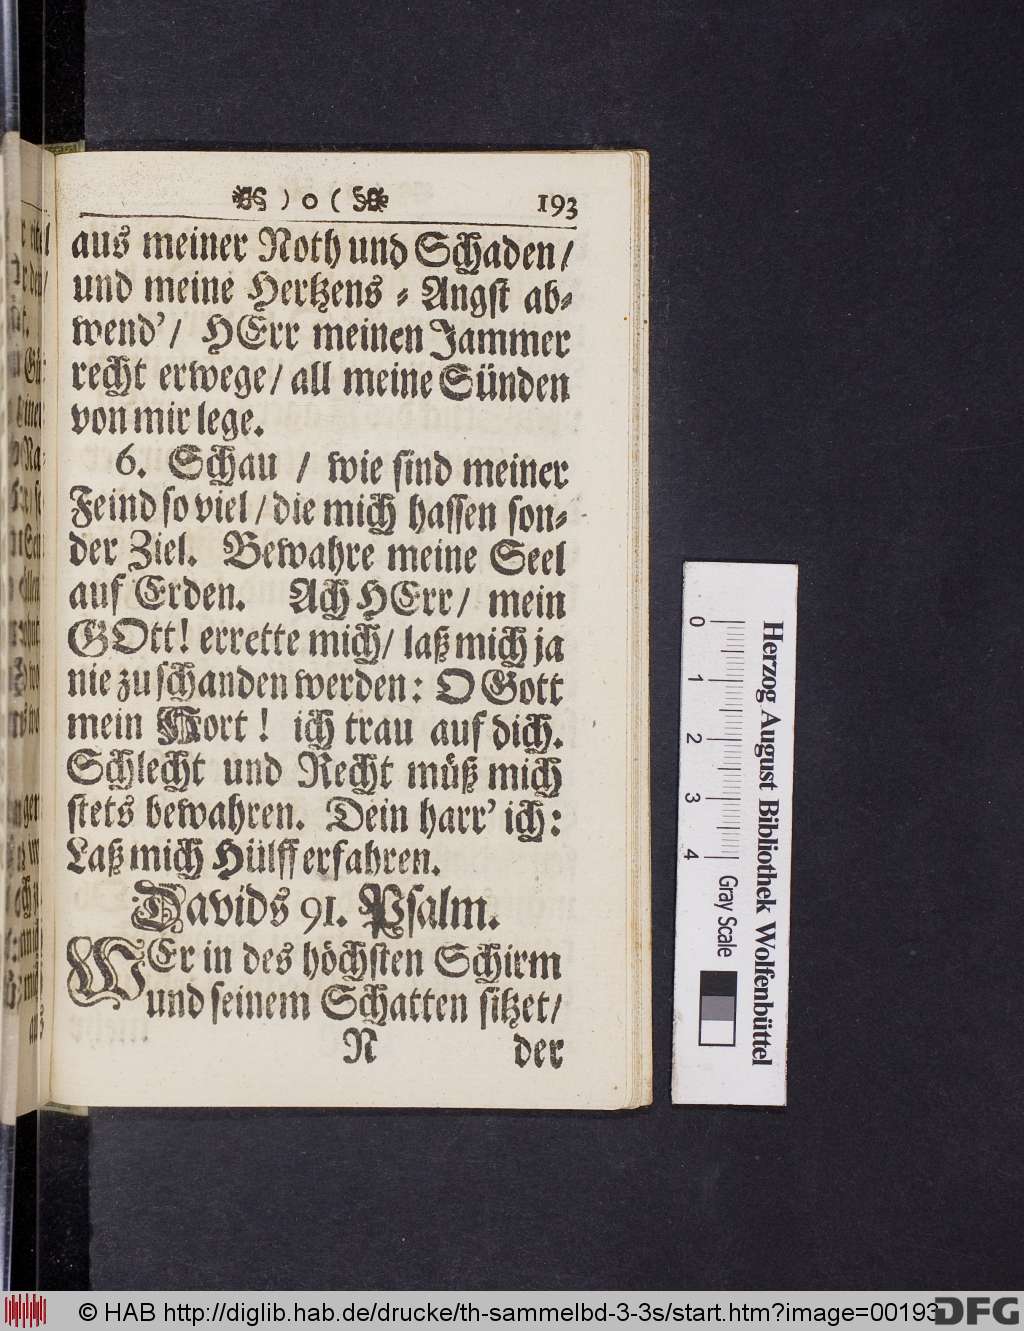 ) o ( 193
aus meiner Noth und Schaden /
und meine Hertzens = Angst ab=
wend’ / HErr meinen Jammer
recht erwege / all meine Sünden
von mir lege.
6. Schau / wie sind meiner
Feind so viel / die mich hassen son=
der Ziel. Bewahre meine Seel
auf Erden. Ach HErr / mein
GOtt! errette mich / laß mich ja
nie zu schanden werden: O Gott
mein Hort! ich trau auf dich.
Schlecht und Recht müß mich
stets bewahren. Dein harr’ ich:
Laß mich Hülff erfahren.
Davids 91. Psalm.
WEr in des höchsten Schirm
und seinem Schatten sitzet /
N der
0 1 2 3 4 Gray Scale
Herzog August Bibliothek Wolfenbüttel
© HAB http://diglib.hab.de/drucke/th-sammelbd-3-3s/start.htm?image=00193
DFG